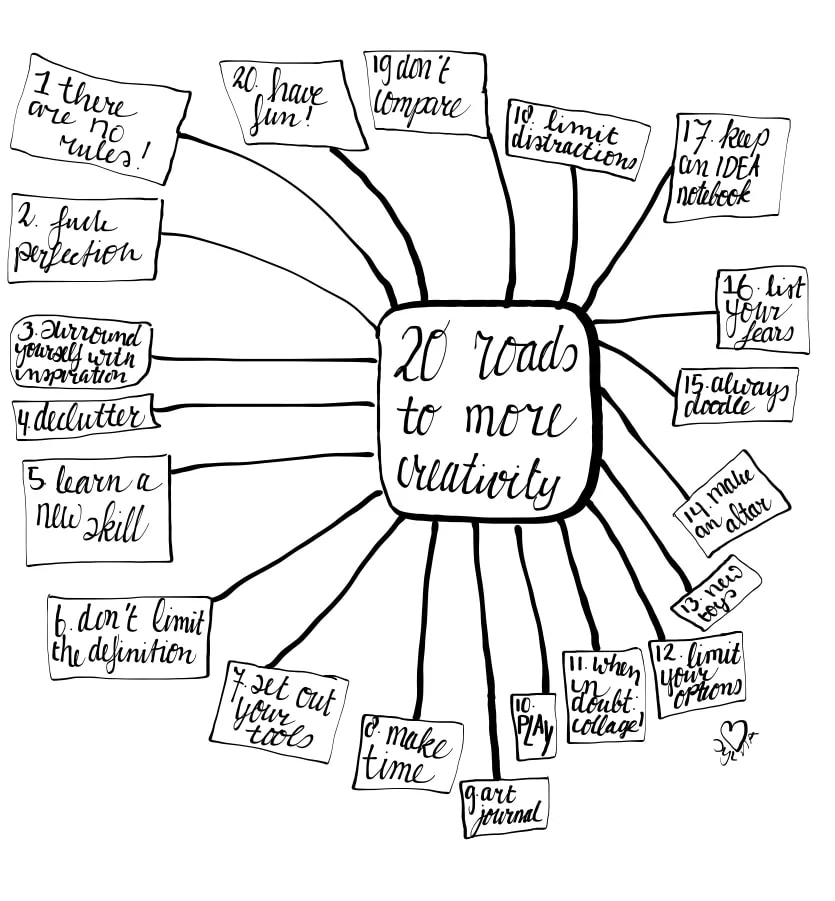 20 roads
to more
creativity
1 there
are no
rules!
2. fuck
perfection
3. surround
yourself with
inspiration
4. declutter
5 learn a
new skill
6. don't limit
the definition
7. set out
your
tools
8. make
time
9. art
journal
10.
PLAY
11. when
in
doubt:
collage!
12. limit
your
options
13. new
toys
14. make
an altar
15. always
doodle
16. list
your
fears
17. keep
an IDEA
notebook
18. limit
distractions
19 don't
compare
20. have
fun!